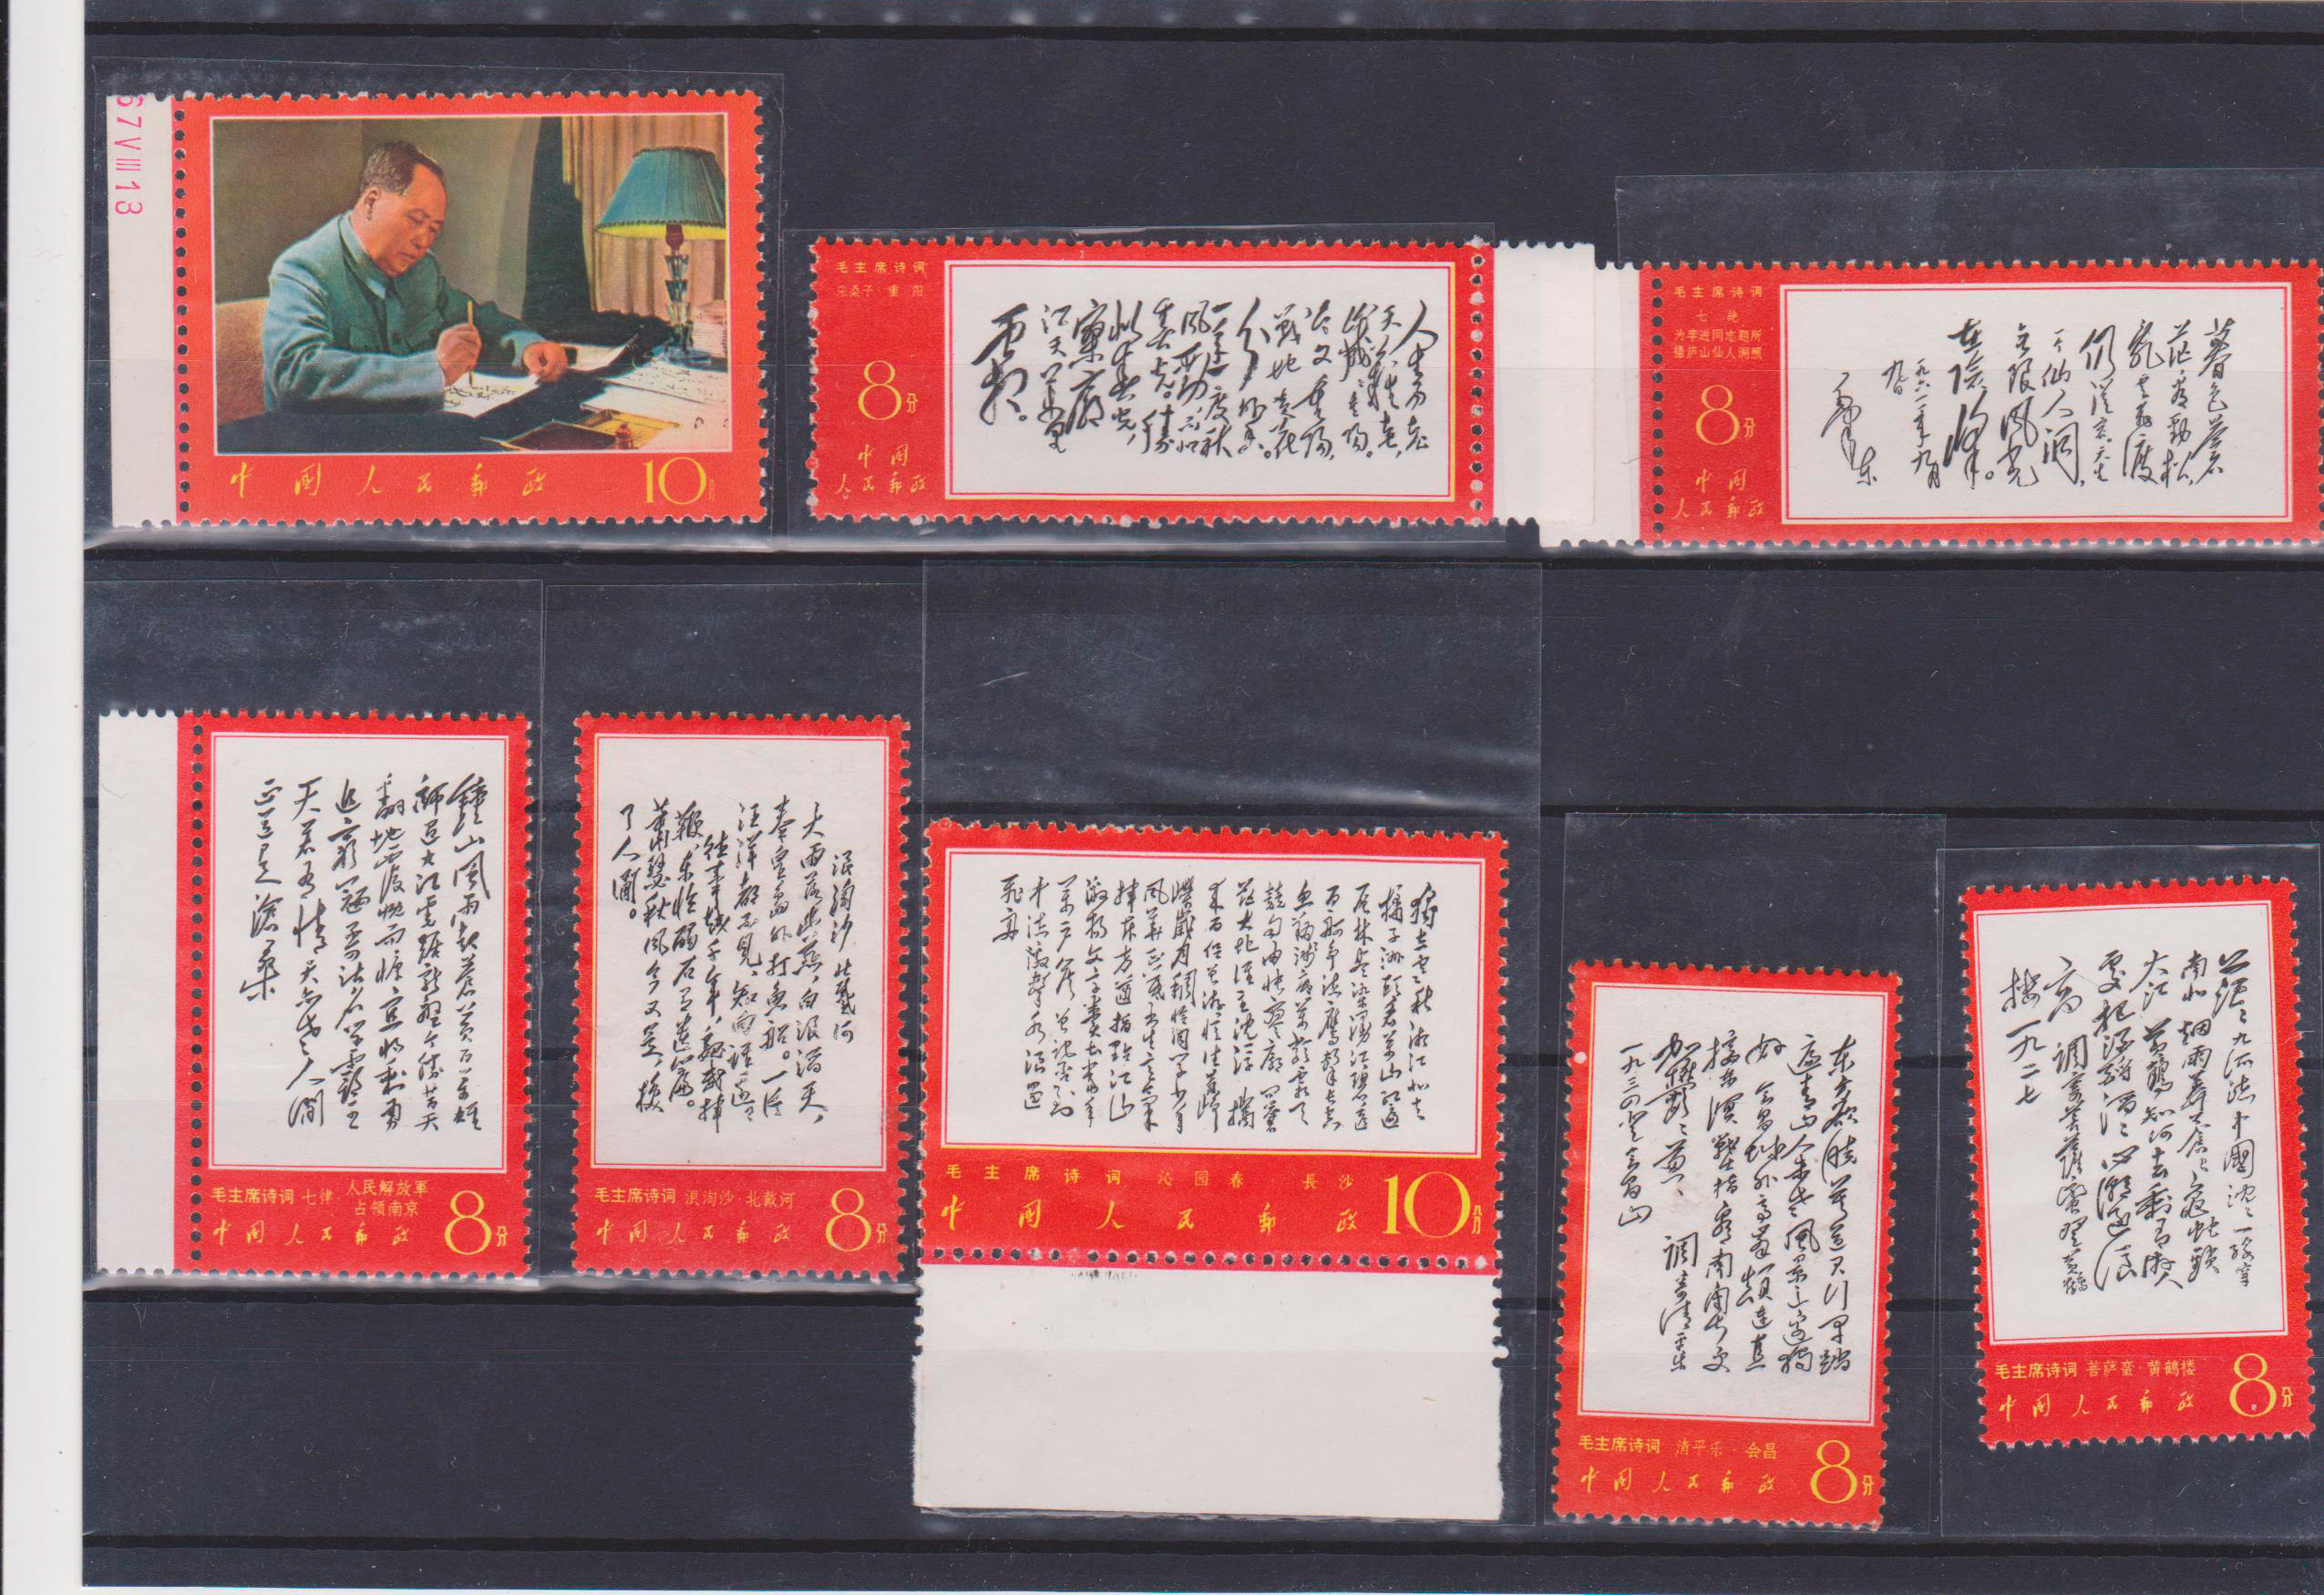 67 VIII 13
中国人民邮政 10分
毛主席诗词
采桑子·重阳
8分
中国
人民邮政
人生易老
天难老,
岁岁重阳。
今又重阳,
战地黄花
分外香。
一年一度秋
风劲,不似
春光。胜
似春光,
寥廓
江天万里
霜。
毛主席诗词
七绝
为李进同志题所
摄庐山仙人洞照
8分
中国
人民邮政
暮色苍
茫看劲松,
乱云飞渡
仍从容。天生
一个仙人洞,
无限风光
在险峰。
一九六一年九月
九日
毛泽东
鐘山风雨起蒼黄百万雄
师过大江虎踞龙盘今胜昔天
翻地覆慨而慷宜将剩勇
追穷寇不可沽名学霸王
天若有情天亦老人間
正道是滄桑
毛主席诗词 七律·人民解放軍
占领南京
中国人民邮政 8分
浪淘沙 北戴河
大雨落幽燕,白浪滔天,
秦皇島外打魚船。一片
汪洋都不見,知向誰边?
往事越千年,魏武挥
鞭,东临碣石有遗篇。
萧瑟秋风今又是,换
了人間。
毛主席诗词 浪淘沙·北戴河
中国人民邮政 8分
独立寒秋湘江北去
橘子洲头看万山红遍
层林尽染漫江碧透
百舸争流鹰击长空
鱼翔浅底万类霜天
竞自由怅寥廓 问苍
茫大地谁主沉浮 携
来百侣曾游忆往昔峥
嵘岁月稠恰同学少年
风华正茂书生意气
挥斥方遒指点江山
激扬文字粪土当年
万户侯曾记否到
中流激击水浪遏
飞舟
毛主席诗词 沁园春·長沙
中国人民邮政 10分
东方欲晓莫道君行早踏
遍青山人未老风景这边独
好 会昌城外高峰颠连直
接东溟战士指看南粤更
加郁郁葱葱 调寄清平乐
一九三四登会昌山
毛主席诗词 清平乐·会昌
中国人民邮政 8分
茫茫九派流中國沉沉一线穿
南北烟雨莽苍苍龟蛇锁
大江 黄鹤知何去剩有游人
处把酒酹滔滔心潮逐浪
高 调寄菩萨蛮登黄鹤
楼一九二七
毛主席诗词 菩萨蛮·黄鹤楼
中国人民邮政 8分